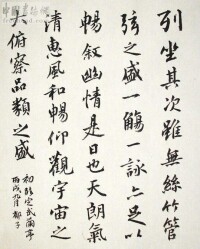 列坐其次雖無絲竹管
弦之盛一觴一詠亦足以
暢叙幽情是日也天朗氣
清惠風和暢仰觀宇宙之
大俯察品類之盛
定武蘭亭
丙戌